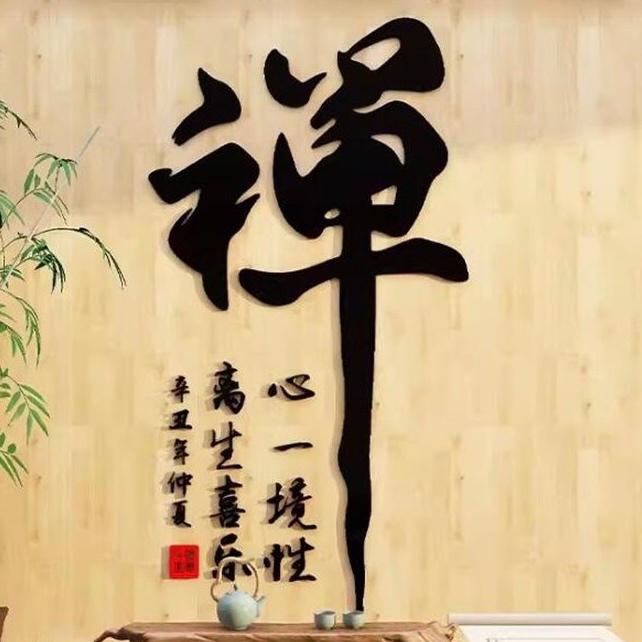 禪
心一境性
离生喜乐
辛丑年仲夏